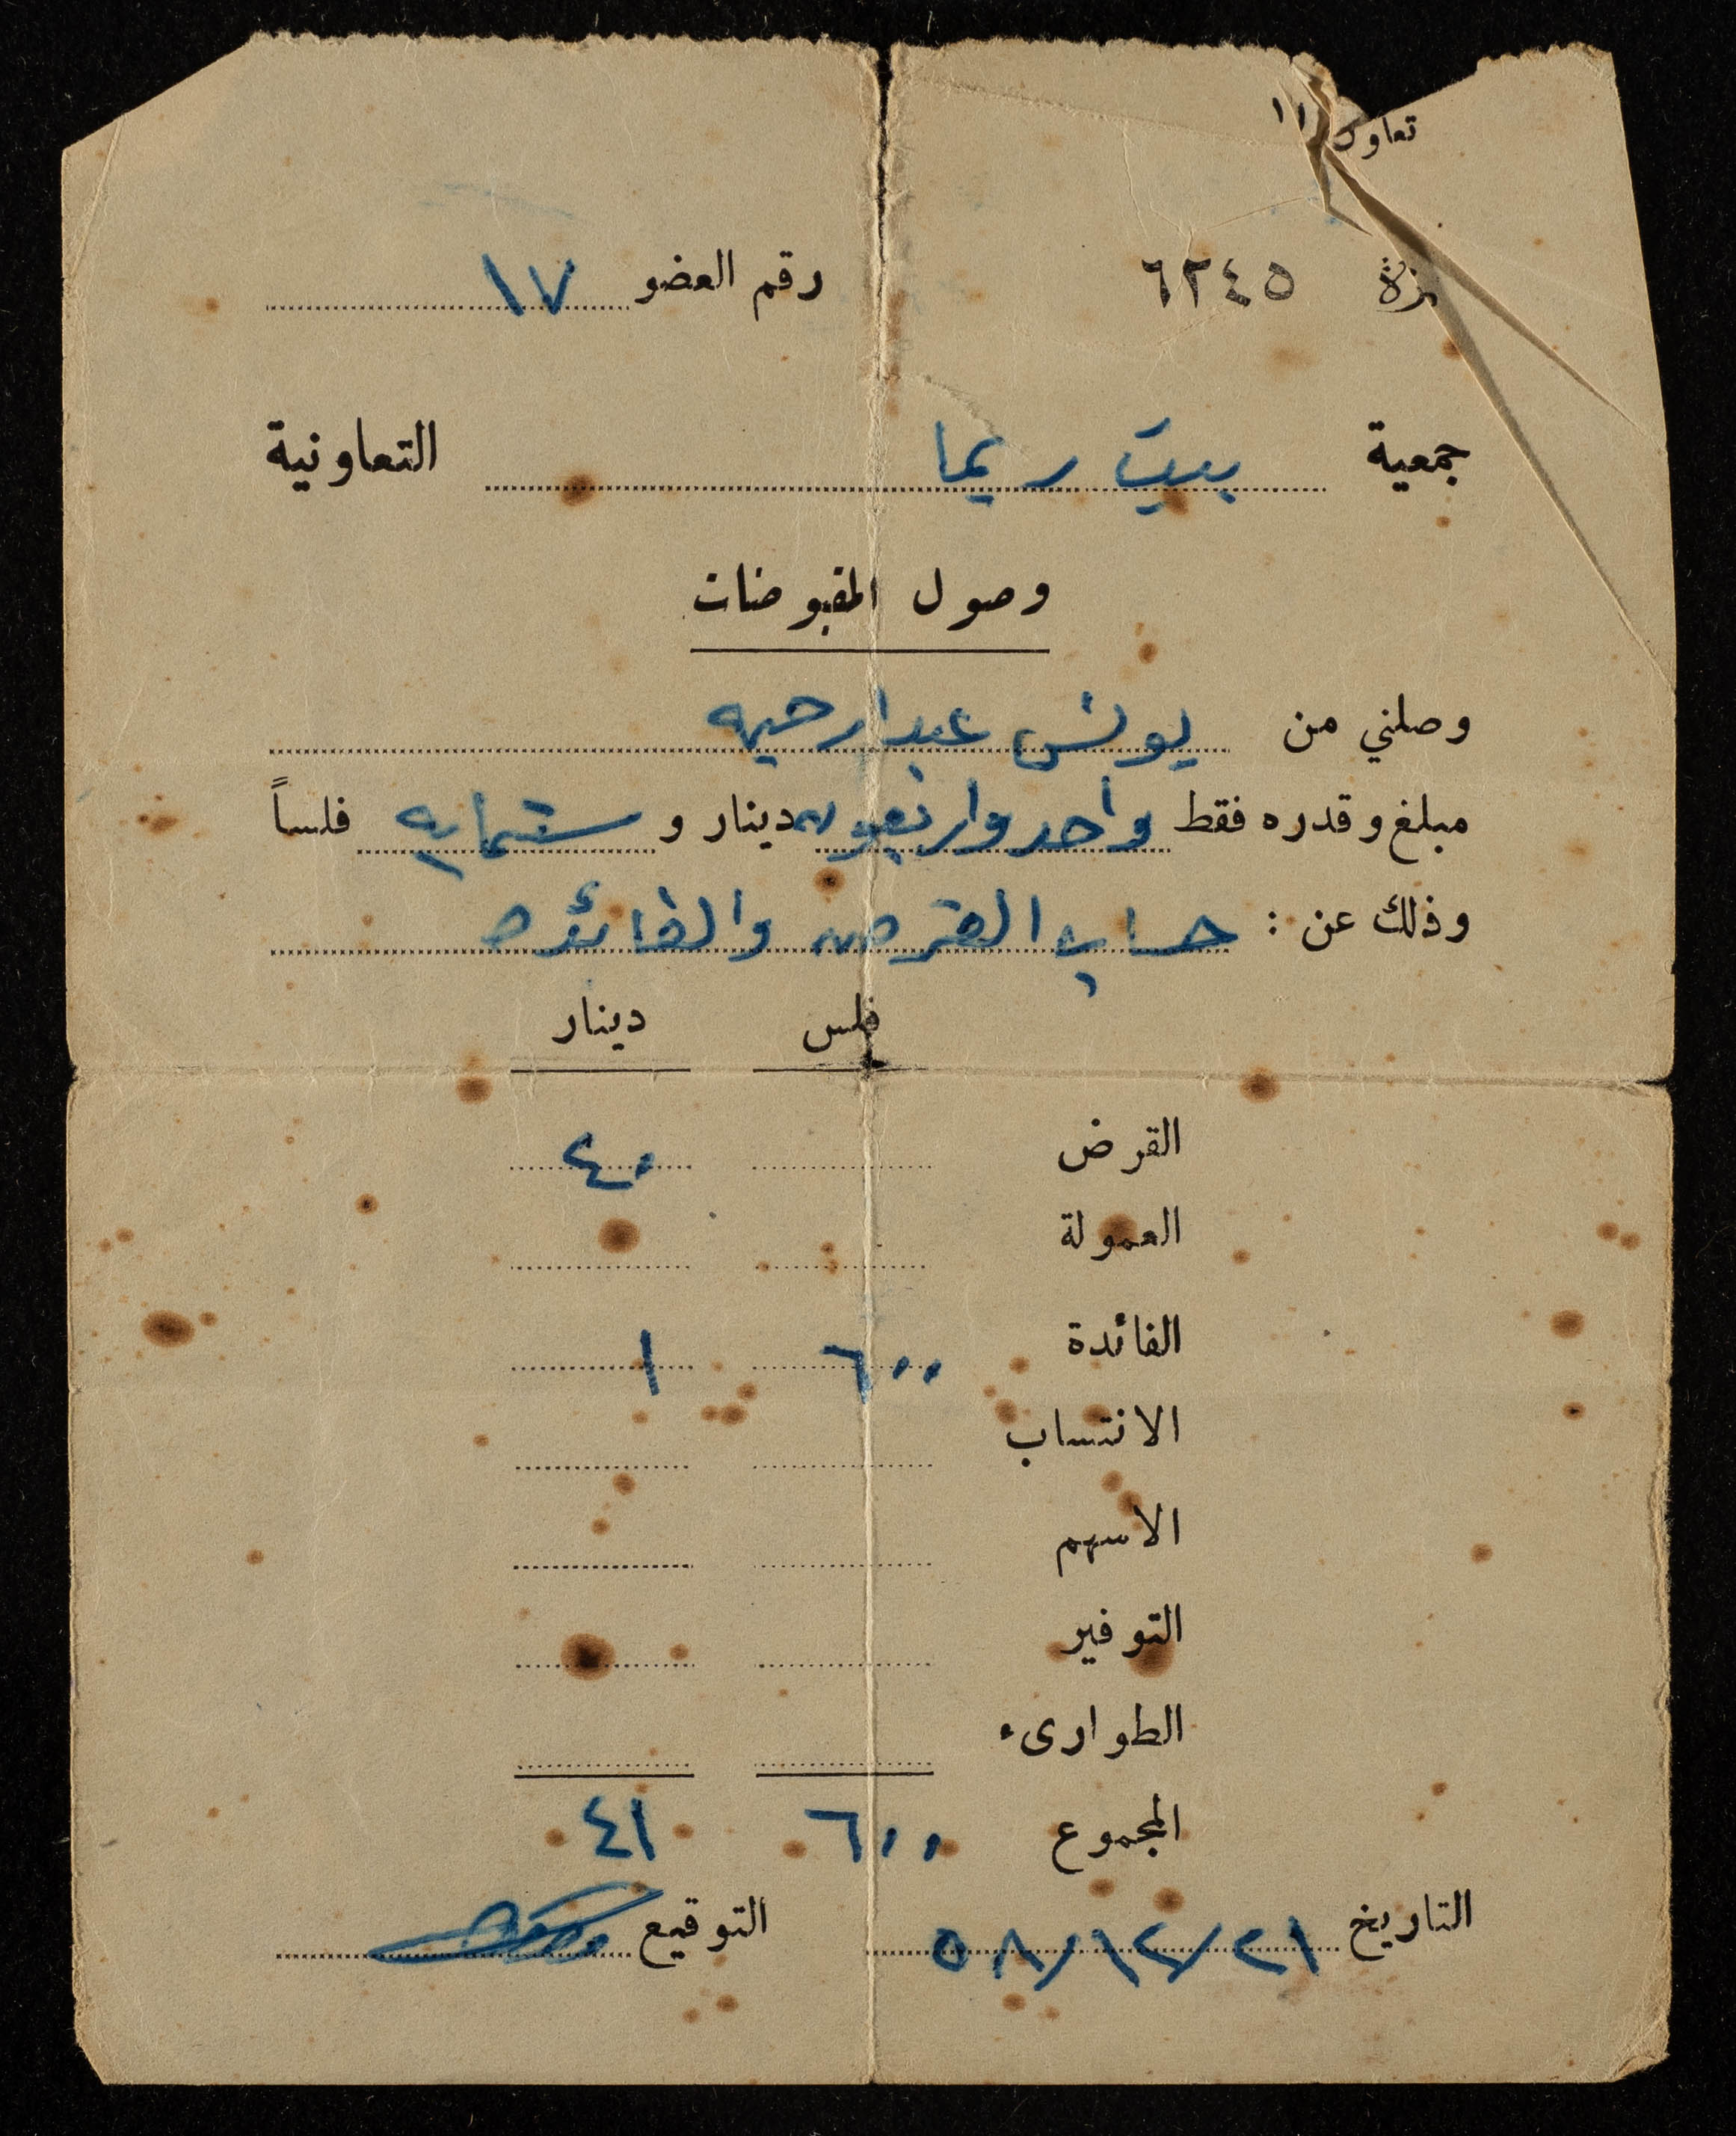 تعاون ١١
نمرة ٦٢٤٥ رقم العضو ١٧
جمعية بيت ريما التعاونية
وصول المقبوضات
وصلني من يونس عبدالرحيم
مبلغ وقدره فقط واحد واربعون دينار و ستماية فلساً
وذلك عن : حساب القرض والفائدة
فلس دينار
القرض ٤٠
العمولة
الفائدة ٦٠٠ ١
الانتساب
الاسهم
التوفير
الطوارىء
المجموع ٦٠٠ ٤١
التاريخ ٢١/١٢/٥٨ التوقيع